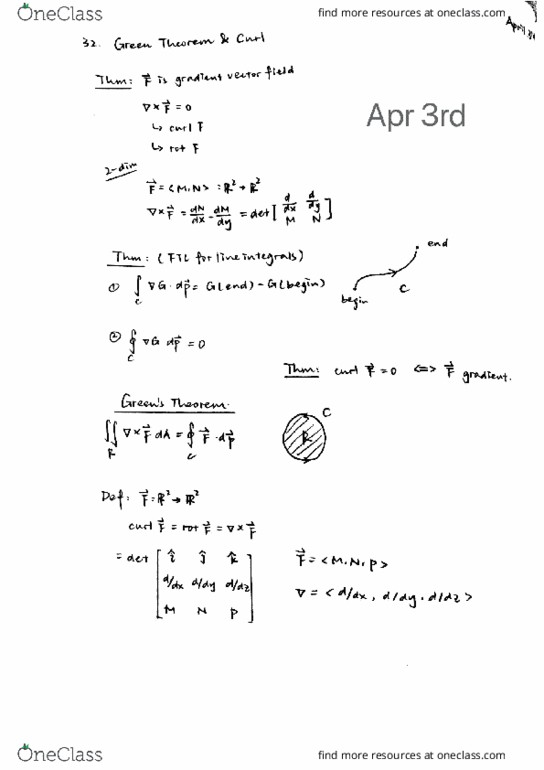 OneClass
find more resources at oneclass.com
32. Green Theorem & Curl
Thm: F⃗ is gradient vector field
∇×F⃗ = 0
↳ curl F
↳ rot F
Apr 3rd
2-dim
F⃗ = <M,N> : ℝ² → ℝ²
∇×F⃗ = dN/dx - dM/dy = det [ d/dx d/dy
M N ]
Thm: (FTL for line integrals)
① ∫_C ∇G · dp⃗ = G(end) - G(begin)
end
begin
C
② ∮_C ∇G dp⃗ = 0
Thm: curl F⃗ = 0 <=> F⃗ gradient.
Green's Theorem.
∬_R ∇×F⃗ dA = ∮_C F⃗ · dp⃗
C
R
Def: F⃗ = ℝ² → ℝ²
curl F⃗ = rot F⃗ = ∇×F⃗
= det [ î ĵ k̂
d/dx d/dy d/dz
M N P ]
F⃗ = <M,N,P>
∇ = <d/dx, d/dy, d/dz>
OneClass
find more resources at oneclass.com